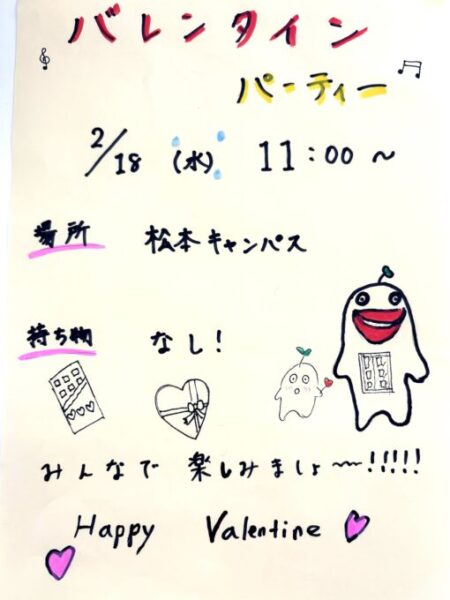 バレンタイン
パーティー
2/18 (水) 11:00~
場所 松本キャンパス
持ち物 なし!
みんなで 楽しみましょ〜!!!!!
Happy Valentine